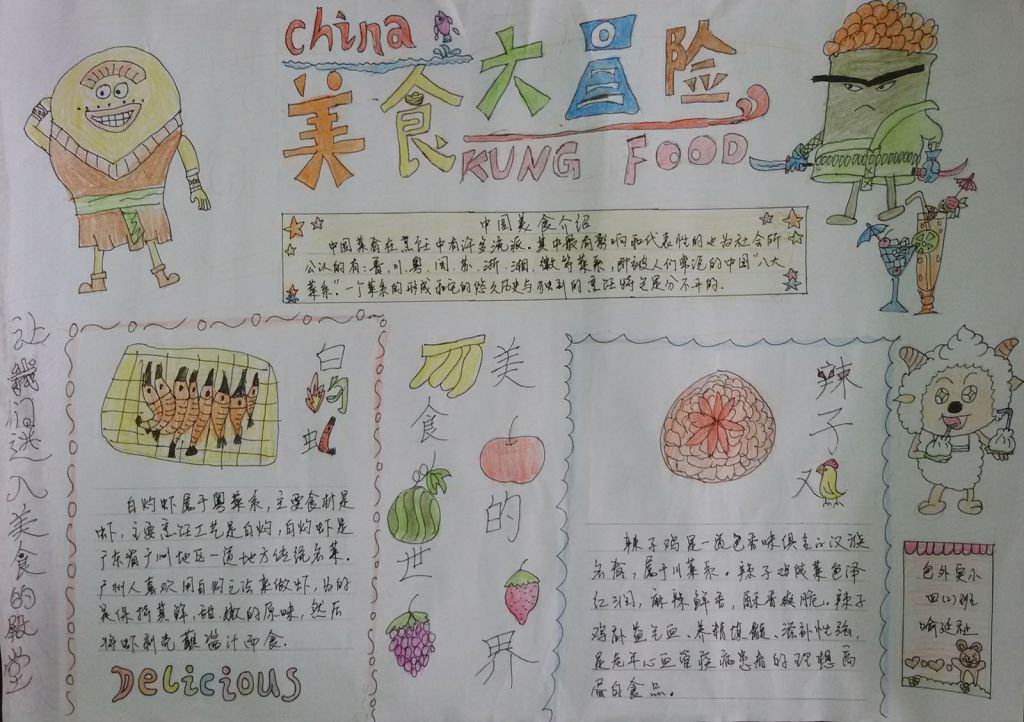 china
美食大冒险
KUNG FOOD
中国美食介绍
中国菜肴在烹饪中有许多流派。其中最有影响和代表性的也为社会所
公认的有:鲁、川、粤、闽、苏、浙、湘、徽等菜系,即被人们常说的中国"八大
菜系"。一个菜系的形成和它的悠久历史与独到的烹饪特色是分不开的。
让我们进入美食的殿堂
白灼虾
白灼虾属于粤菜系,主要食材是
虾,主要烹饪工艺是白灼,白灼虾是
广东省广州地区一道地方传统名菜。
广州人喜欢用白灼之法来做虾,为的
是保持其鲜、甜、嫩的原味,然后
将虾剥壳蘸酱汁而食。
Delicious
美食的世界
辣子又
辣子鸡是一道色香味俱全的汉族
名肴,属于川菜系。辣子鸡成菜色泽
红润,麻辣鲜香,酥香爽脆。辣子
鸡补益气血、养精填髓、滋补性强,
是老年心血管疾病患者的理想高
蛋白食品。
四(1)班